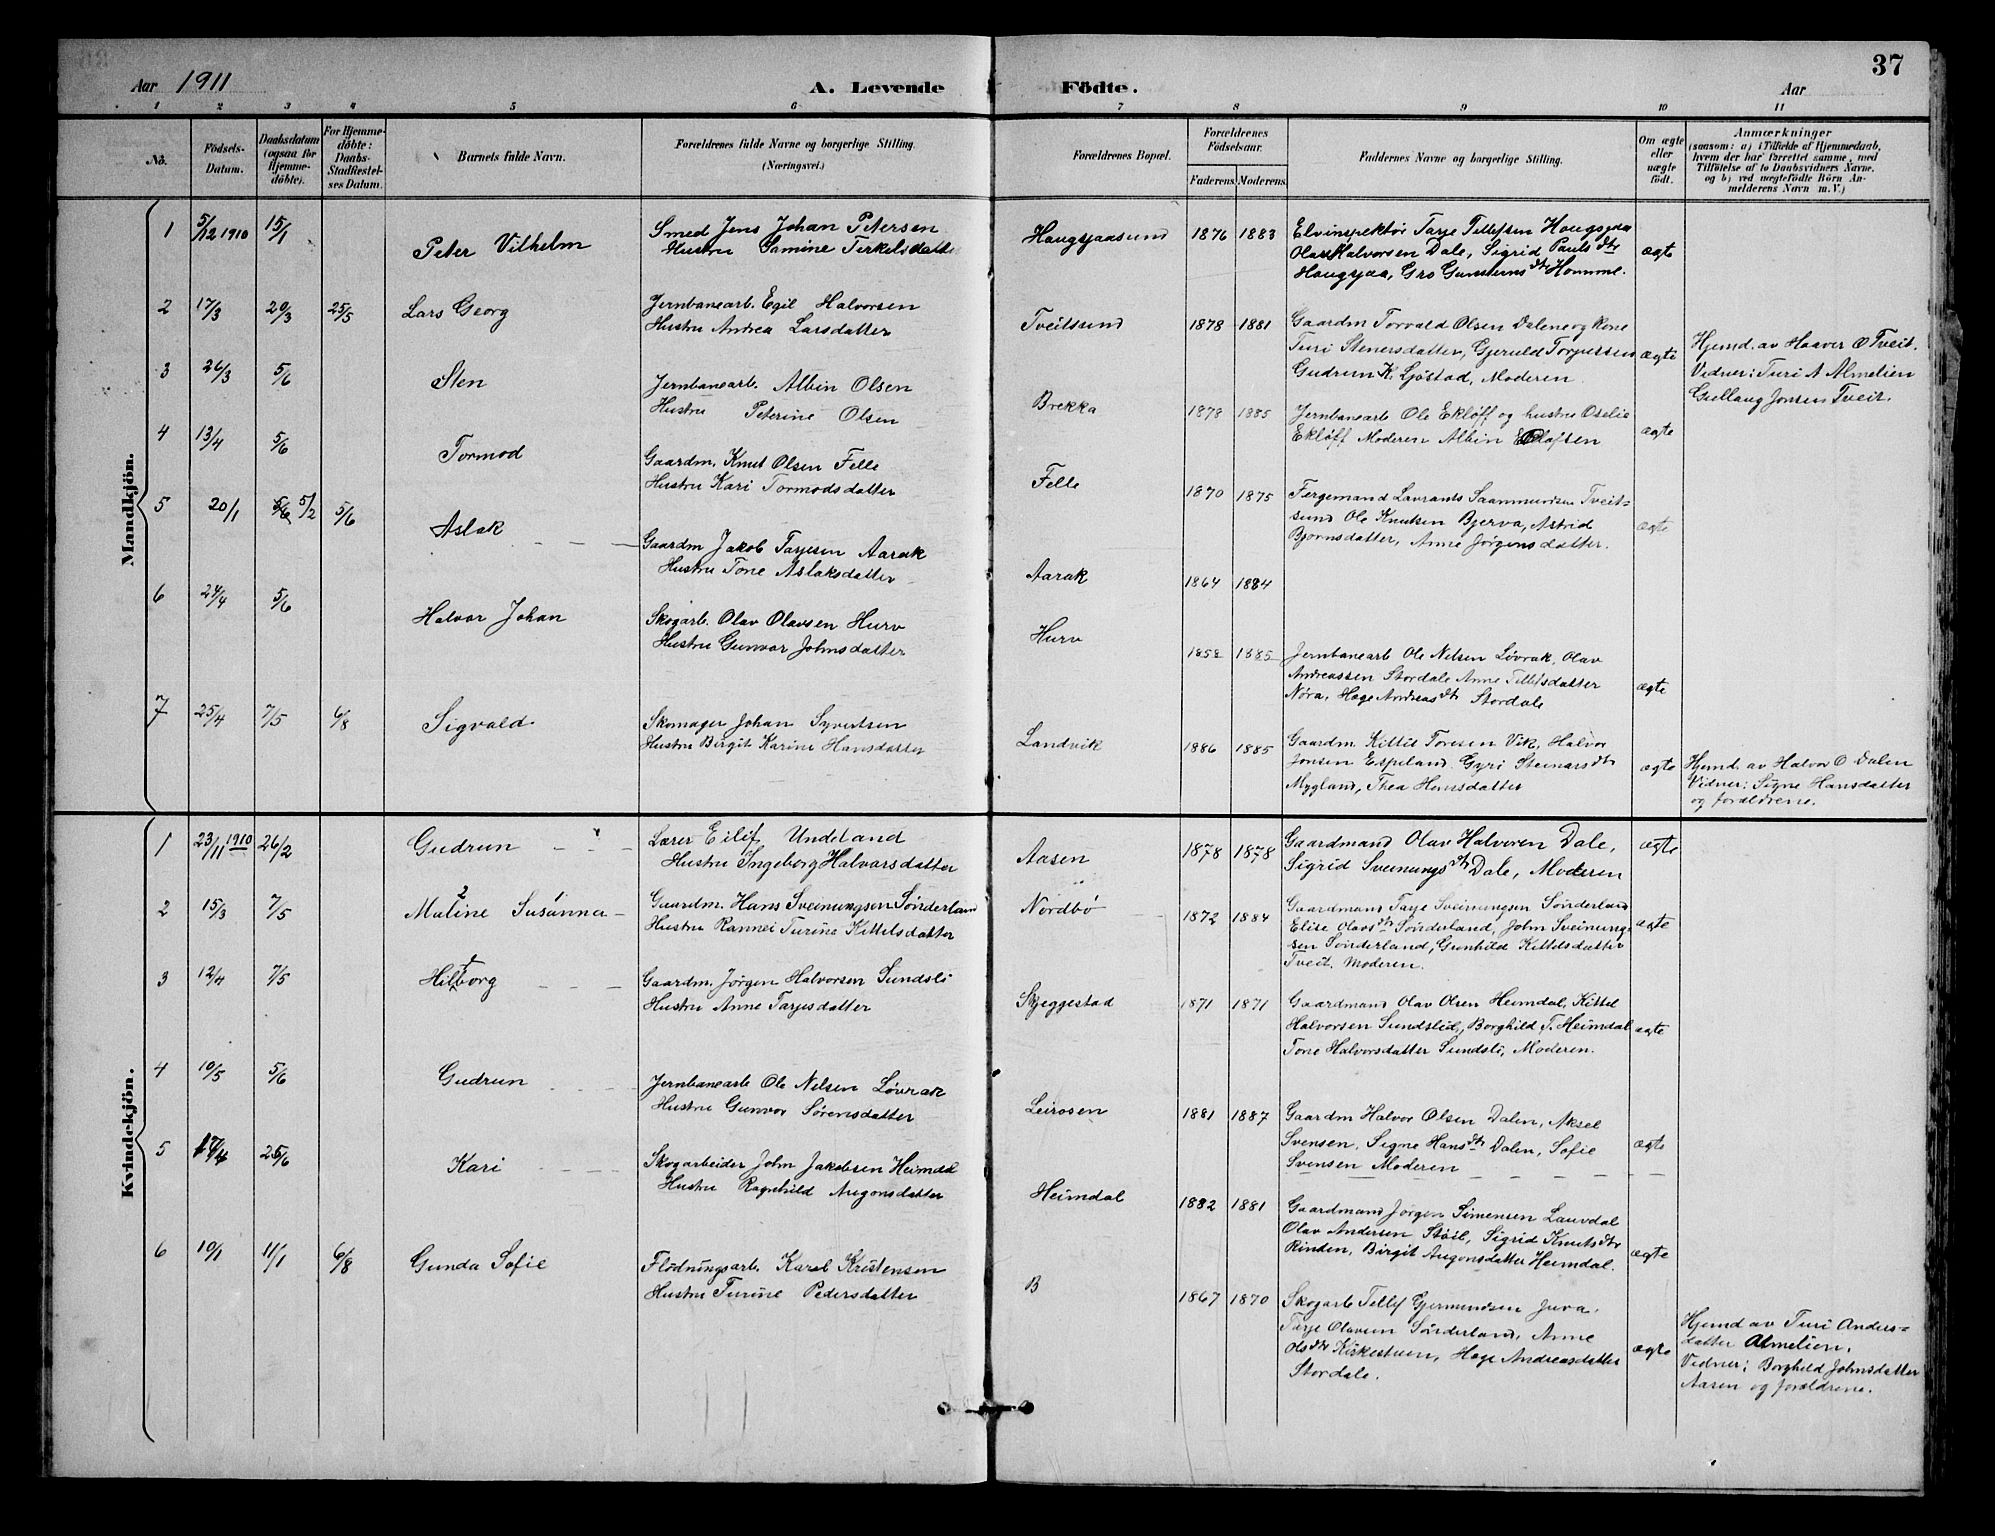 37
Aar 1911
A. Levende
Födte.
Aar
1 2 3 4 5 6 7 8 9 10 11
No.
Födsels-
Datum.
Daabsdatum
(ogsaa for
Hjemme-
döbte).
For Hjemme-
döbte:
Daabs-
Stadfæstel-
ses Datum.
Barnets fulde Navn.
Forældrenes fulde Navne og borgerlige Stilling.
(Næringsvei.)
Forældrenes Bopæl.
Forældrenes
Födselsaar.
Faderens. Moderens.
Faddernes Navne og borgerlige Stilling.
Om ægte
eller
uægte
födt.
Anmærkninger
(saasom: a) i Tilfælde af Hjemmedaab,
hvem der har forrettet samme, med
Tilföielse af to Daabsvidners Navne,
og b) ved uægtefödte Börn An-
melderens Navn m. V.)
Mandkjön.
1 5/12 1910 15/1
Peter Vilhelm
Smed Jens Johan Petersen
Hustru Samine Terkelsdatter
Haugsjaasund
1876 1883
Elvinspektør Tarje Tellefsen Haugsjaa
Olav Halvorsen Dale, Sigrid Paulsdtr
Haugsjaa, Gro Gunsteinsdtr Homme.
ægte
2 17/3 20/3 25/5
Lars Georg
Jernbanearb. Egil Halvorsen
Hustru Andrea Larsdatter
Tveitsund
1878 1881
Gaardm Torvald Olsen Dalene og kone
Turi Stenersdatter, Gjeruld Torjussen
Gudrun K. Ljøstad, Moderen.
ægte
Hjemd. av Haaver O Tveit.
Vidner: Turi A Almelien
Gullaug Jonsen Tveit.
3 26/3 5/6
Sten
Jernbanearb. Albin Olsen
Hustru Peterine Olsen
Brekka
1878 1885
Jernbanearb Ole Ekløff og hustru Oselie
Ekløff Moderen Albin Olofsen
ægte
4 13/4 5/6
Tormod
Gaardm. Knut Olsen Felle
Hustru Kari Tormodsdatter
Felle
1870 1875
Fergemand Lavrants Saamundsen Tveit-
sund Ole Knutsen Bjerva, Astrid
Bjørnsdatter, Anne Jørgensdatter.
ægte
5 20/1 5/6 5/2 5/6
Aslak
Gaardm Jakob Tarjesen Aarak
Hustru Tone Aslaksdatter
Aarak
1864 1884
6 24/4 5/6
Halvor Johan
Skogarb. Olav Olavsen Hurv
Hustru Gunvor Johnsdatter
Hurv
1858 1885
Jernbanearb Ole Nelsen Løvrak, Olav
Andreassen Stordale Anne Tellefsdatter
Nøra, Hage Andreasdtr Stordale
ægte
7 25/4 7/5 6/8
Sigvald
Skomager Johan Syvertsen
Hustru Birgit Karine Hansdatter
Landvik
1886 1885
Gaardm Kittil Toresen Vik, Halvor
Jonsen Espeland. Gyri Steinarsdtr
Mygland, Thea Hansdatter
ægte
Hjemd. av Halvor O Dalen
Vidner: Signe Hansdatter
og forældrene.
Kvindekjön.
1 23/11 1910 26/2
Gudrun
Lærer Eilif Undeland
Hustru Ingeborg Halvorsdatter
Aasen
1878 1878
Gaardmand Olav Halvoren Dale,
Sigrid Sveinungsdtr Dale, Moderen
ægte
2 15/3 7/5
Maline Susanna
Gaardm. Hans Sveinungsen Sønderland
Hustru Rannei Turine Kittelsdatter
Nordbø
1872 1884
Gaardmand Tarje Sveinungsen Sønderland
Elise Olavsdtr Sønderland, John Sveinung-
sen Sønderland, Gunhild Kittelsdatter
Tveit. Moderen.
ægte
3 12/4 7/5
Hilborg
Gaardm. Jørgen Halvorsen Sundsli
Hustru Anne Tarjesdatter
Skjeggestad
1871 1871
Gaardmand Olav Olsen Heimdal, Kittel
Halvorsen Sundslid, Borghild T. Heimdal
Tone Halvorsdatter Sundsli, Moderen.
ægte
4 10/5 5/6
Gudrun
Jernbanearb Ole Nelsen Løvrak
Hustru Gunvor Sørensdatter
Leirosen
1881 1887
Gaardm Halvor Olsen Dalen, Aksel
Svensen. Signe Hansdtr Dalen, Sofie
Svensen Moderen
ægte
5 17/4 25/6
Kari
Skogarbeider John Jakobsen Heimdal
Hustru Ragnhild Augonsdatter
Heimdal
1882 1881
Gaardmand Jørgen Simensen Lauvdal
Olav Andersen Støil, Sigrid Knutsdtr
Rinden, Birgit Augonsdatter Heimdal.
ægte
6 10/1 11/1 6/8
Gunda Sofie
Flødningsarb. Karel Kristensen
Hustru Turine Pedersdatter
B
1867 1870
Skogarb Tellef Gjermundsen Juva.
Tarje Olavsen Sønderland, Anne
Olsdtr Kirkestuen, Hage Andreasdatter
Stordale.
ægte
Hjemd av Turi Anders-
datter Almelien.
Vidner: Borghild Johnsdatter
Aasen og forældrene.